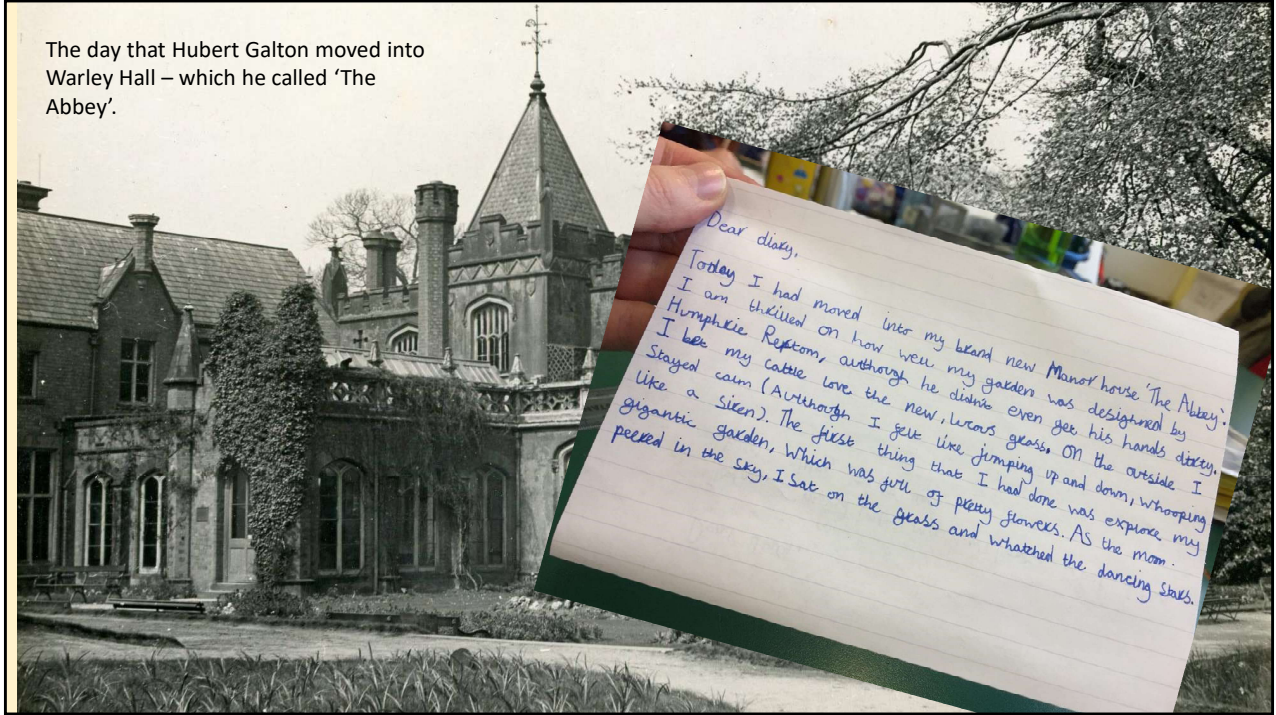 The day that Hubert Galton moved into
Warley Hall – which he called ‘The
Abbey’.
Dear diary,
Today I had moved into my brand new Manor house 'The Abbey'.
I am thrilled on how well my garden was designned by
Humphrie Reptom, aulthough he didn't even get his hands dirty.
I bet my cattle love the new, lucous grass. On the outside I
Stayed calm (Aulthough I felt like jumping up and down, whooping
like a siren). The first thing that I had done was explore my
gigantic garden, which was full of pretty flowers. As the moon
peeked in the sky, I Sat on the grass and whatched the dancing stars.